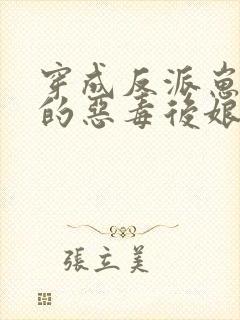 穿成反派崽
的惡毒後娘
張立美